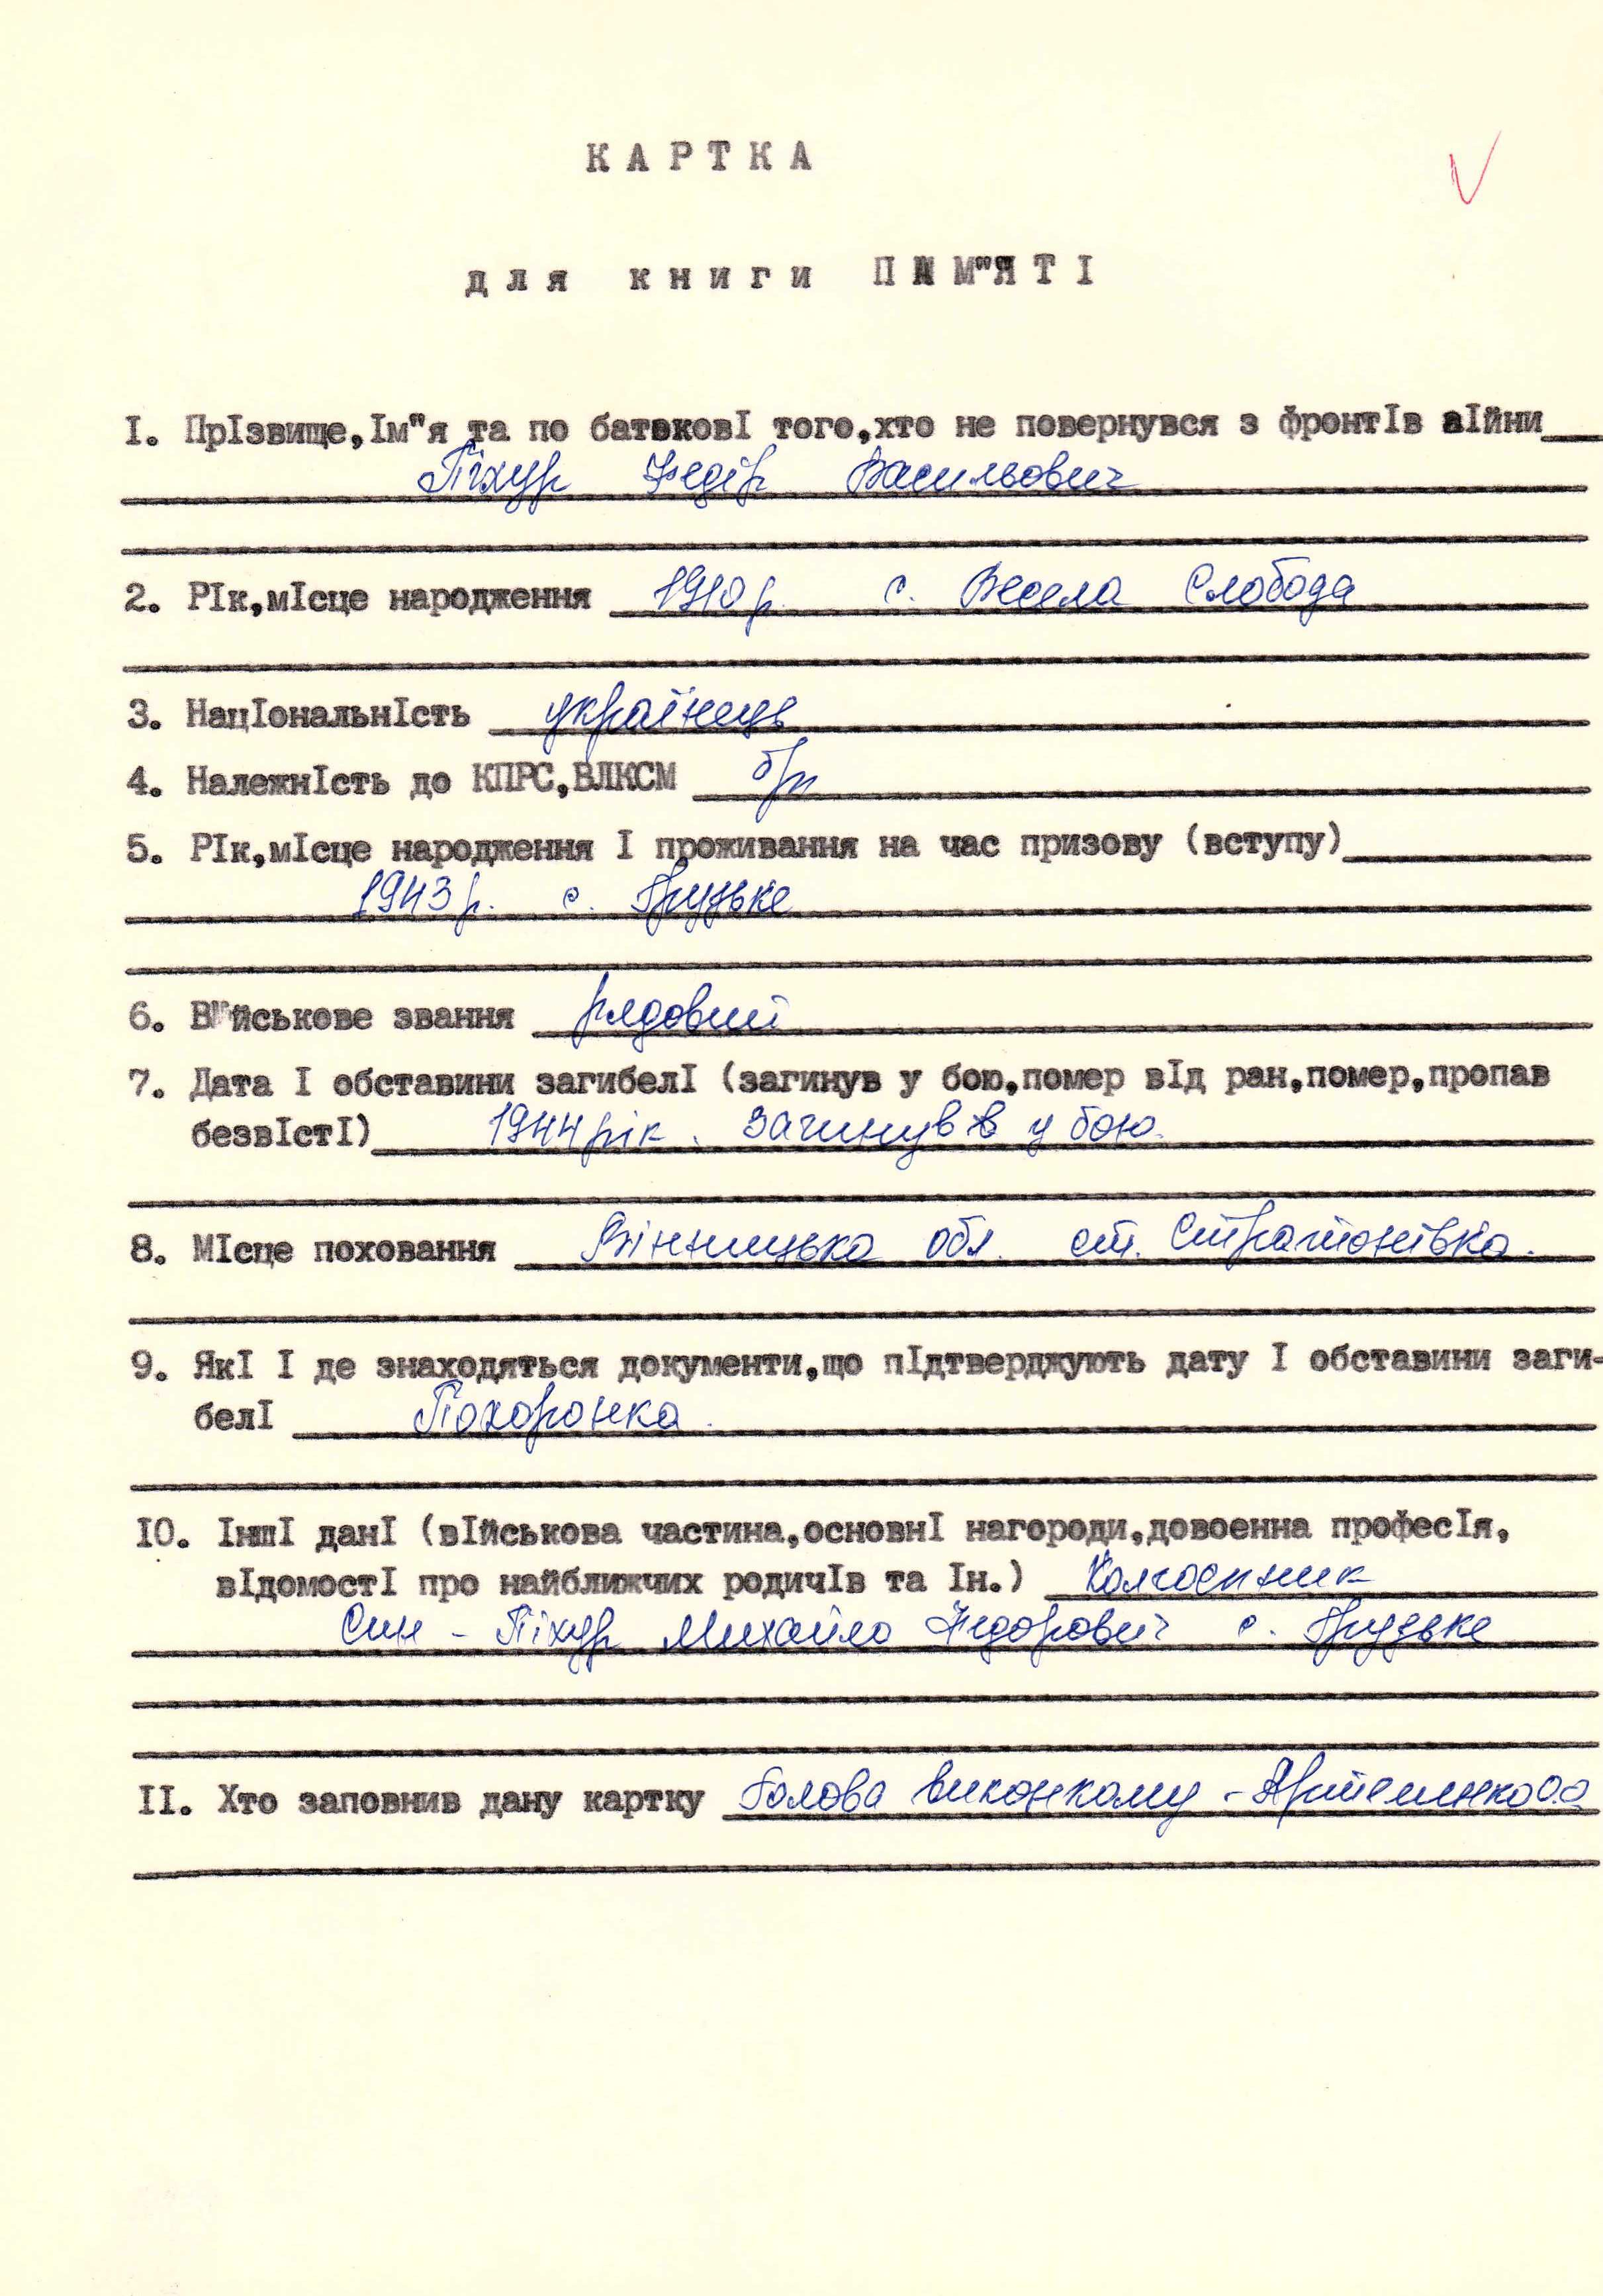 КАРТКА
для книги ПАМ"ЯТІ
І. ПрІзвище,Ім"я та по батьковІ того,хто не повернувся з фронтІв вІйни
Піхур Федір Васильович
2. РІк,мІсце народження 1910 р. с. Весела Слобода
3. НацІональнІсть українець
4. НалежнІсть до КПРС,ВЛКСМ б/п
5. РІк,мІсце народження І проживання на час призову (вступу)
1943 р. с. Грузьке
6. Військове звання рядовий
7. Дата І обставини загибелІ (загинув у бою,помер вІд ран,помер,пропав
безвІстІ) 1944 рік. Загинув в у бою.
8. МІсце поховання Вінницька обл. ст. Стратонівка.
9. ЯкІ І де знаходяться документи,що пІдтверджують дату І обставини заги-
белІ Похоронка.
ІО. ІншІ данІ (вІйськова частина,основнІ нагороди,довоенна професІя,
вІдомостІ про найближчих родичІв та Ін.) Колгоспник
Син - Піхур Михайло Федорович с. Грузьке
ІІ. Хто заповнив дану картку Голова виконкому - Артеменко О.О